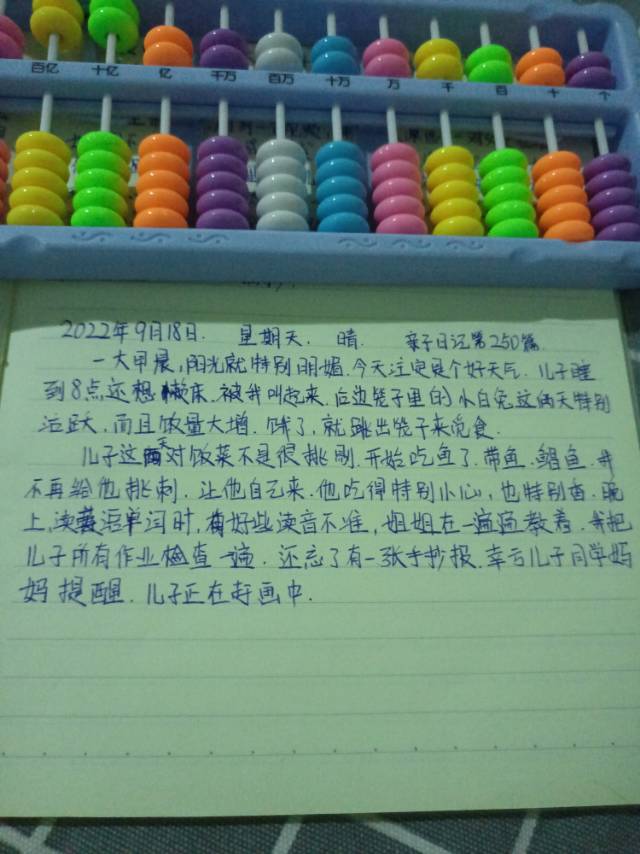 百亿 十亿 亿 千万 百万 十万 万 千 百 十 个
2022年9月18日. 星期天. 晴. 亲子日记第250篇.
一大早晨,阳光就特别明媚.今天注定是个好天气.儿子睡
到8点,还想懒床.被我叫起来.后边笼子里的小白兔这俩天特别
活跃,而且饭量大增.饿了,就跳出笼子来觅食.
儿子这两天对饭菜不是很挑剔.开始吃鱼了.带鱼.鲳鱼.并
不再给他挑刺.让他自己来.他吃得特别小心,也特别香.晚
上,读英语单词时,有好些读音不准,姐姐在一遍遍教着.我把
儿子所有作业检查一遍.还忘了有一张手抄报.幸亏儿子同学妈
妈提醒.儿子正在赶画中.